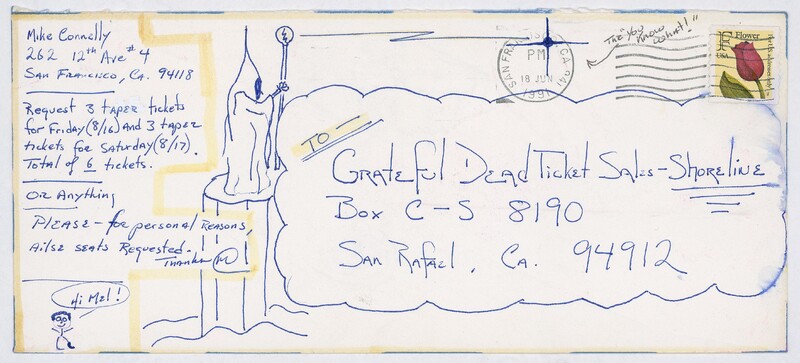 Mike Connolly
262 12th Ave #4
San Francisco, Ca. 94118
Request 3 taper tickets
for Friday (8/16) and 3 taper
tickets for Saturday (8/17).
Total of 6 tickets.
Or Anything
Please - for personal reasons,
Ailse seats Requested.
Thanks M
Hi Mel!
SAN FRANCISCO, CA 941
PM
18 JUN
1991
The "You
Know
What!"
Flower
USA
To
Grateful Dead Ticket Sales - Shoreline
Box C-S 8190
San Rafael, Ca. 94912